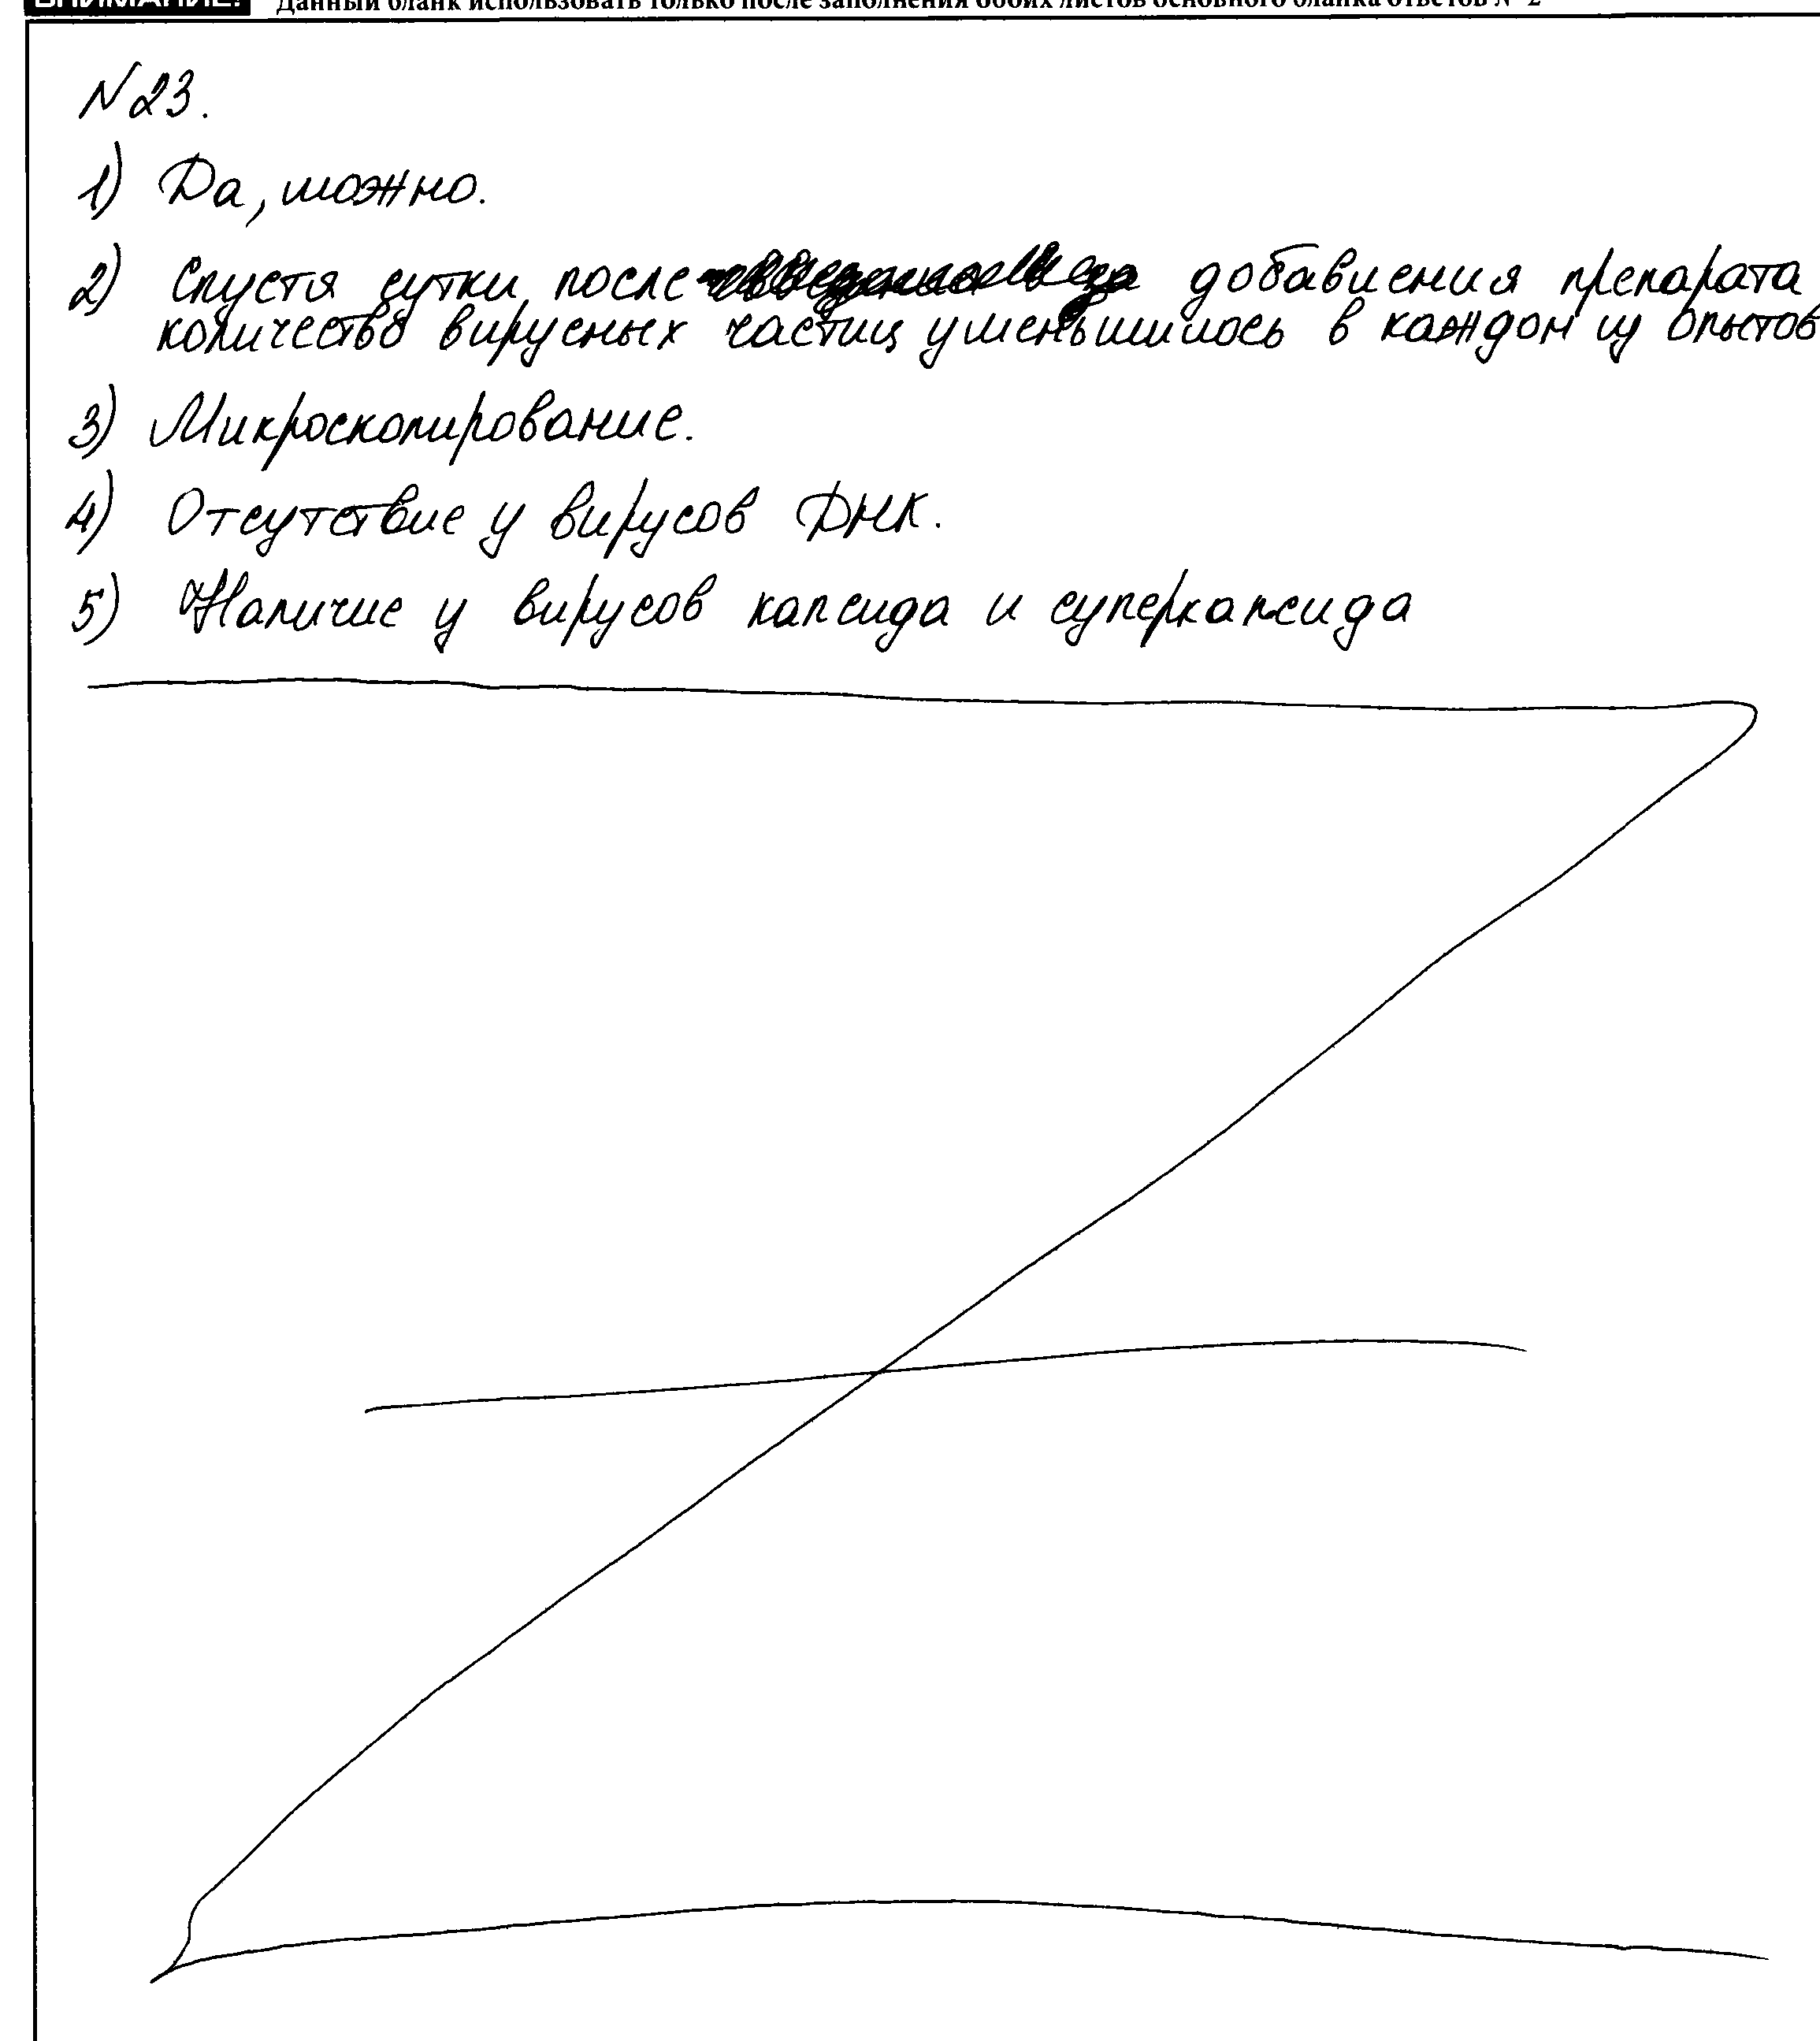 Данный бланк использовать только после заполнения обоих листов основного бланка ответов № 2
N 23.
1) Да, можно.
2) Спустя сутки после добавления препарата
количество вирусных частиц уменьшилось в каждом из опытов
3) Микроскопирование.
4) Отсутствие у вирусов ДНК.
5) Наличие у вирусов капсида и суперкапсида